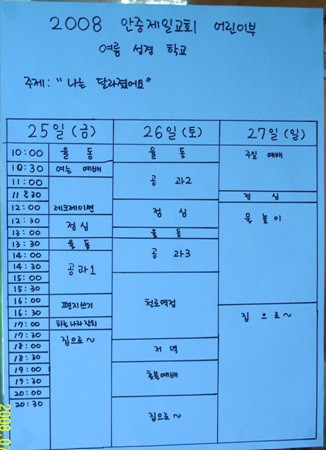 2008 안중제일교회 어린이부
여름 성경 학교
주제: "나는 달라졌어요"
25일(금) 26일(토) 27일(일)
10:00 율 동 율 동 주일 예배
10:30 여는 예배
11:00 공 과2
11:30 점 심
12:00 레크레이션 점 심 윷 놀이
12:30 점 심
13:00 율 동
13:30 율 동 공 과3
14:00 공과1
14:30
15:00
15:30 천로역정
16:00 편지쓰기 집 으로~
16:30
17:00 하늘나라잔치
17:30 집으로~
18:00 저 녁
18:30
19:00
19:30
20:00
20:30 집으로~